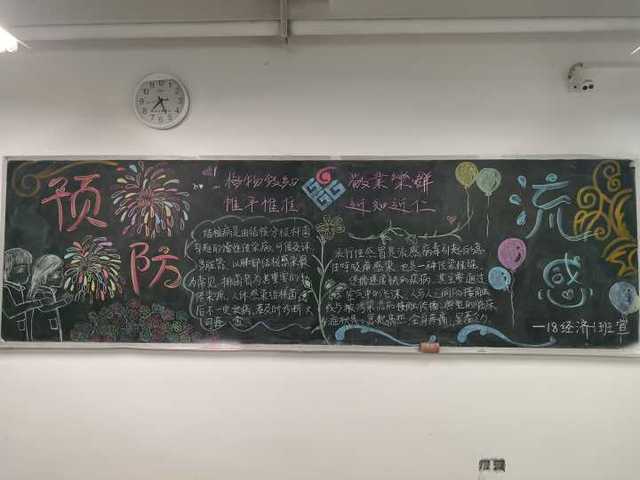 预防
格物致知
惟平惟准
敬业乐群
近知近仁
流感
结核病是由结核分枝杆菌
引起的慢性传染病,可侵及许
多脏器,以肺部结核感染最
为常见。排菌者为其重要的
传染源。人体感染结核菌
后不一定发病,
流行性感冒是流感病毒引起的急
性呼吸道感染,也是一种传染性强、
传播速度快的疾病。其主要通过
空气中的飞沫、人与人之间的接触或
与被污染物品的接触传播。
—18经济1班宣